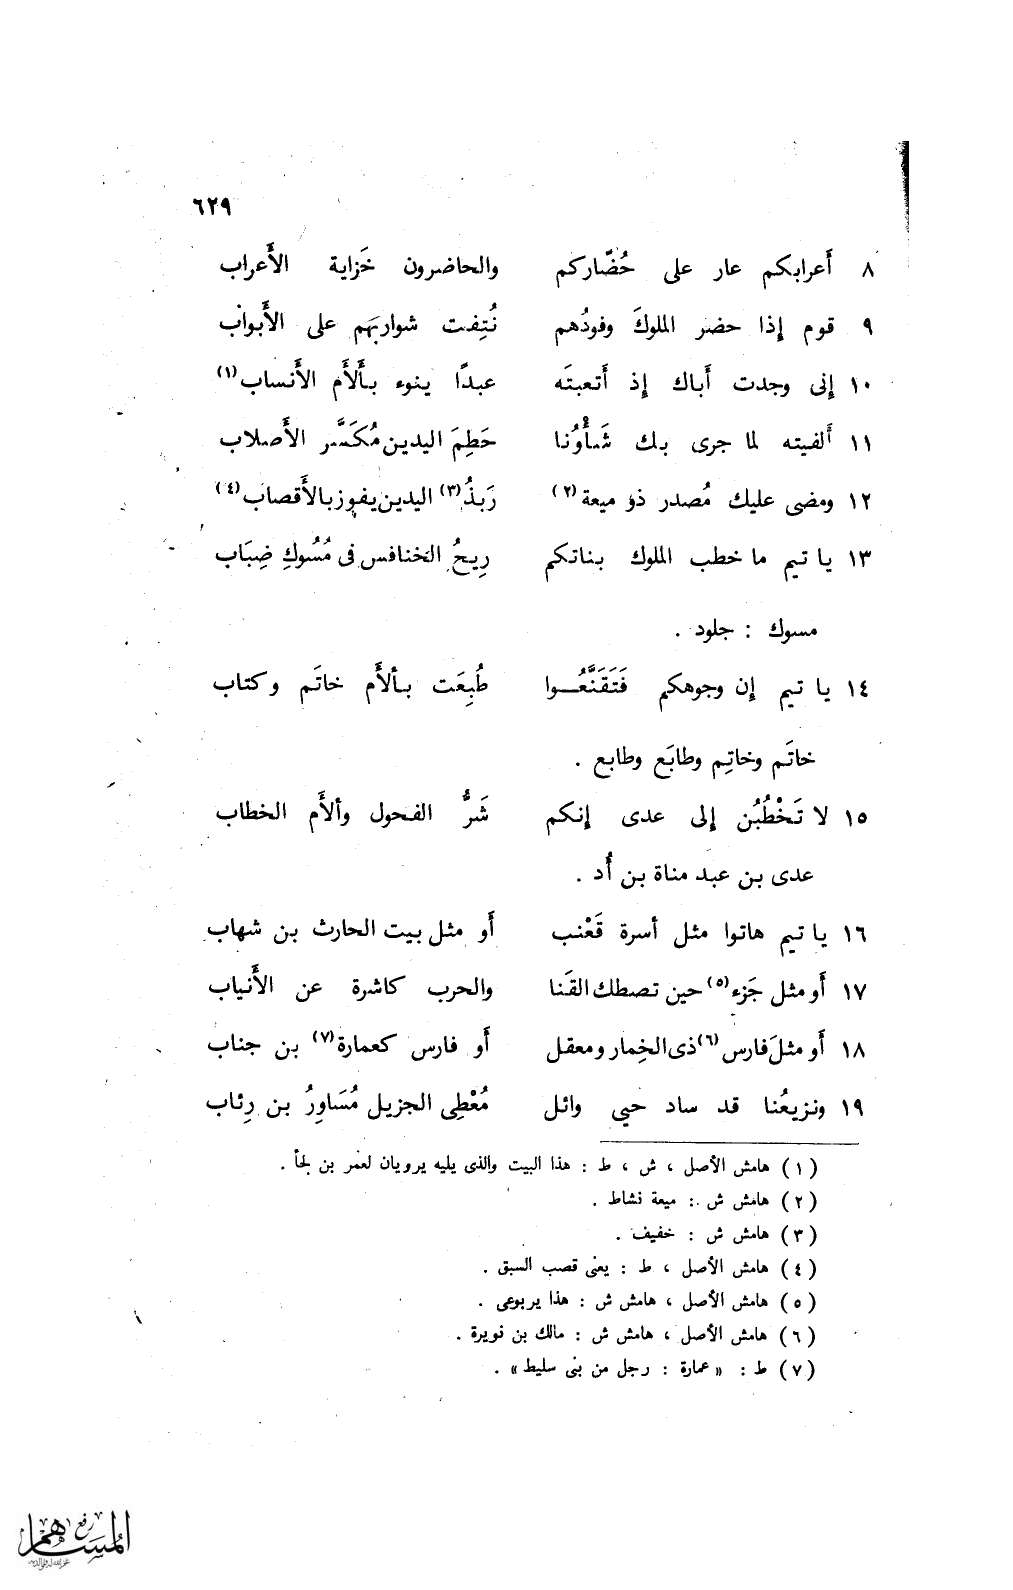 ٦٢٩
٨ أَعرابكم عار على حُضَّاركم والحاضرون خَزاية الأَعراب
٩ قوم إِذا حضر الملوكَ وفودُهم نُتِفت شواربَهم على الأَبواب
١٠ إِنى وجدت أَباك إِذ أَتعبتَه عبدًا ينوء بأَلأَم الأَنساب(١)
١١ أَلفيته لما جرى بك شَأْوُنا حَطِمَ اليدين مُكَسَّر الأَصلاب
١٢ ومضى عليك مُصدر ذو ميعة(٢) رَبذُ(٣) اليدين يفوز بالأَقصاب(٤)
١٣ يا تيم ما خطب الملوك بناتكم رِيحُ الخنافس فى مُسُوكِ ضِبَاب
مسوك : جلود .
١٤ يا تيم إِن وجوهكم فَتَقَنَّعُوا طُبِعَت بألأَم خاتَم وكتاب
خاتَم وخاتِم وطابَع وطابع .
١٥ لا تَخْطُبُن إِلى عدى إِنكم شَرُّ الفحول وألأَم الخطاب
عدى بن عبد مناة بن أُد .
١٦ يا تيم هاتوا مثل أسرة قَعْنب أَو مثل بيت الحارث بن شهاب
١٧ أَو مثل جَزء(٥) حين تصطك القَنا والحرب كاشرة عن الأَنياب
١٨ أَو مثلَ فارس(٦) ذى الخِمار ومعقل أَو فارس كعمارة(٧) بن جناب
١٩ ونزيعُنا قد ساد حيي وائل مُعْطِى الجزيل مُسَاوِرُ بن رِئاب
(١) هامش الأصل ، ش ، ط : هذا البيت والذى يليه يرويان لعمر بن لجأ .
(٢) هامش ش : ميعة نشاط .
(٣) هامش ش : خفيف .
(٤) هامش الأصل ، ط : يعنى قصب السبق .
(٥) هامش الأصل ، هامش ش : هذا يربوعى .
(٦) هامش الأصل ، هامش ش : مالك بن نويرة .
(٧) ط : « عمارة : رجل من بنى سليط » .